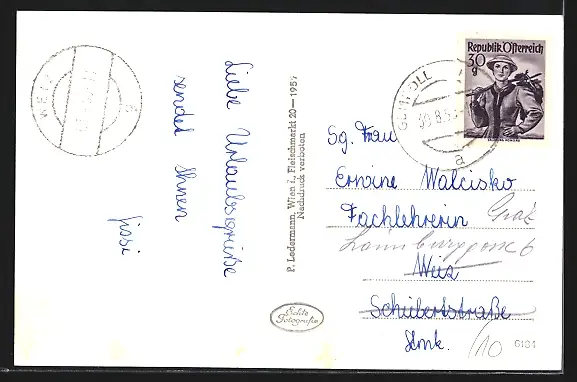 WEIZ
Liebe Urlaubsgrüße
sendet Ihnen
Sissi
P. Ledermann, Wien I., Fleischmarkt 20—1957
Nachdruck verboten
Echte
Fotografie
Republik Österreich
30
g
a
Sg. Frau
Erwine Walcisko
Fachlehrerin Graz
6
Weiz
Schubertstraße
Stmk. /10